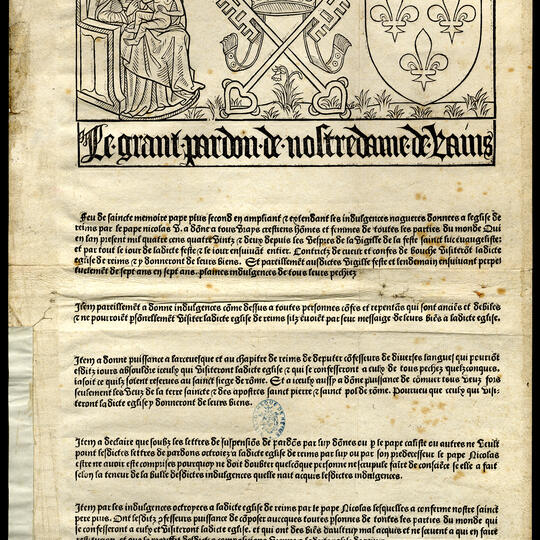 Le grant pardon de nostre dame de Rains
Feu de saincte memoire pape pius second en ampliant & extendant les indulgences nagueres donnees a leglise de
reims par le pape nicolas v. a dōne a tous vrays crestiens hōmes et femmes de toutes les parties du monde Qui
en lan present mil quatre cens quatre vintz & deux depuis les vespres de la vigille de la feste sainct luc euangeliste:
et par tout le iour de ladicte feste & le iour ensuiuāt entier. Contrictz de cueur et confes de bouche visiterōt ladicte
eglise de reims & y donneront de leurs biens. Et pareillement ausdictes vigille feste et lendemain ensuiuant perpe
tuelemēt de sept ans en sept ans. plaines indulgences de tous leurs pechez
Item pareillemēt a donne indulgences cōme dessus a toutes personnes cōfes et repentās qui sont anciēs et debiles
& ne pourroiēt psōnelemēt visiter ladicte eglise de reims silz ēuoiēt par seur message de leurs biēs a ladicte eglise.
Item a donne puissance a larceuesque et au chapitre de reims de deputer cōfesseurs de diuerses langues qui peurrōt
esditz iours absouldre iceulx qui visiteront ladicte eglise & qui se confesseront a eulx de tous pechez quelzconques.
ia soit ce quilz soient reserues au sainct siege de rōme. Et a iceulx aussy a dōne puissance de cōmuer tous veuz fors
seulement les veuz de la terre saincte & des apostres sainct pierre & sainct pol de rōme. Pourueu que ceulx qui visi-
teront ladicte eglise y donneront de leurs biens.
Item a declaire que soubz les lettres de suspensiōn de pardōns par luy dōnes ou p le pape calixte ou autres ne veult
point lesdictes lettres de pardons octroiez a ladicte eglise de reims par luy ou par son predecesseur le pape Nicolas
estre ne auoir este comprises pourquoy ne doit doubter quelcōque personne ne scrupule faire de consciēce se elle a fait
selon la teneur de la bulle desdictes indulgences quelle nait acquis lesdictes indulgences.
Item par les indulgences octroyees a ladicte eglise de reims par le pape Nicolas lesquelles a conferme nostre sainct
pere pius. Ont lesditz cōfesseurs puissance de cōposer auecques toutes psonnes de toutes les parties du monde qui
se confesseront a eulx et visiteront ladicte eglise. et qui ont des biēs daultruy mal acquis et ne sceuent a qui en faire